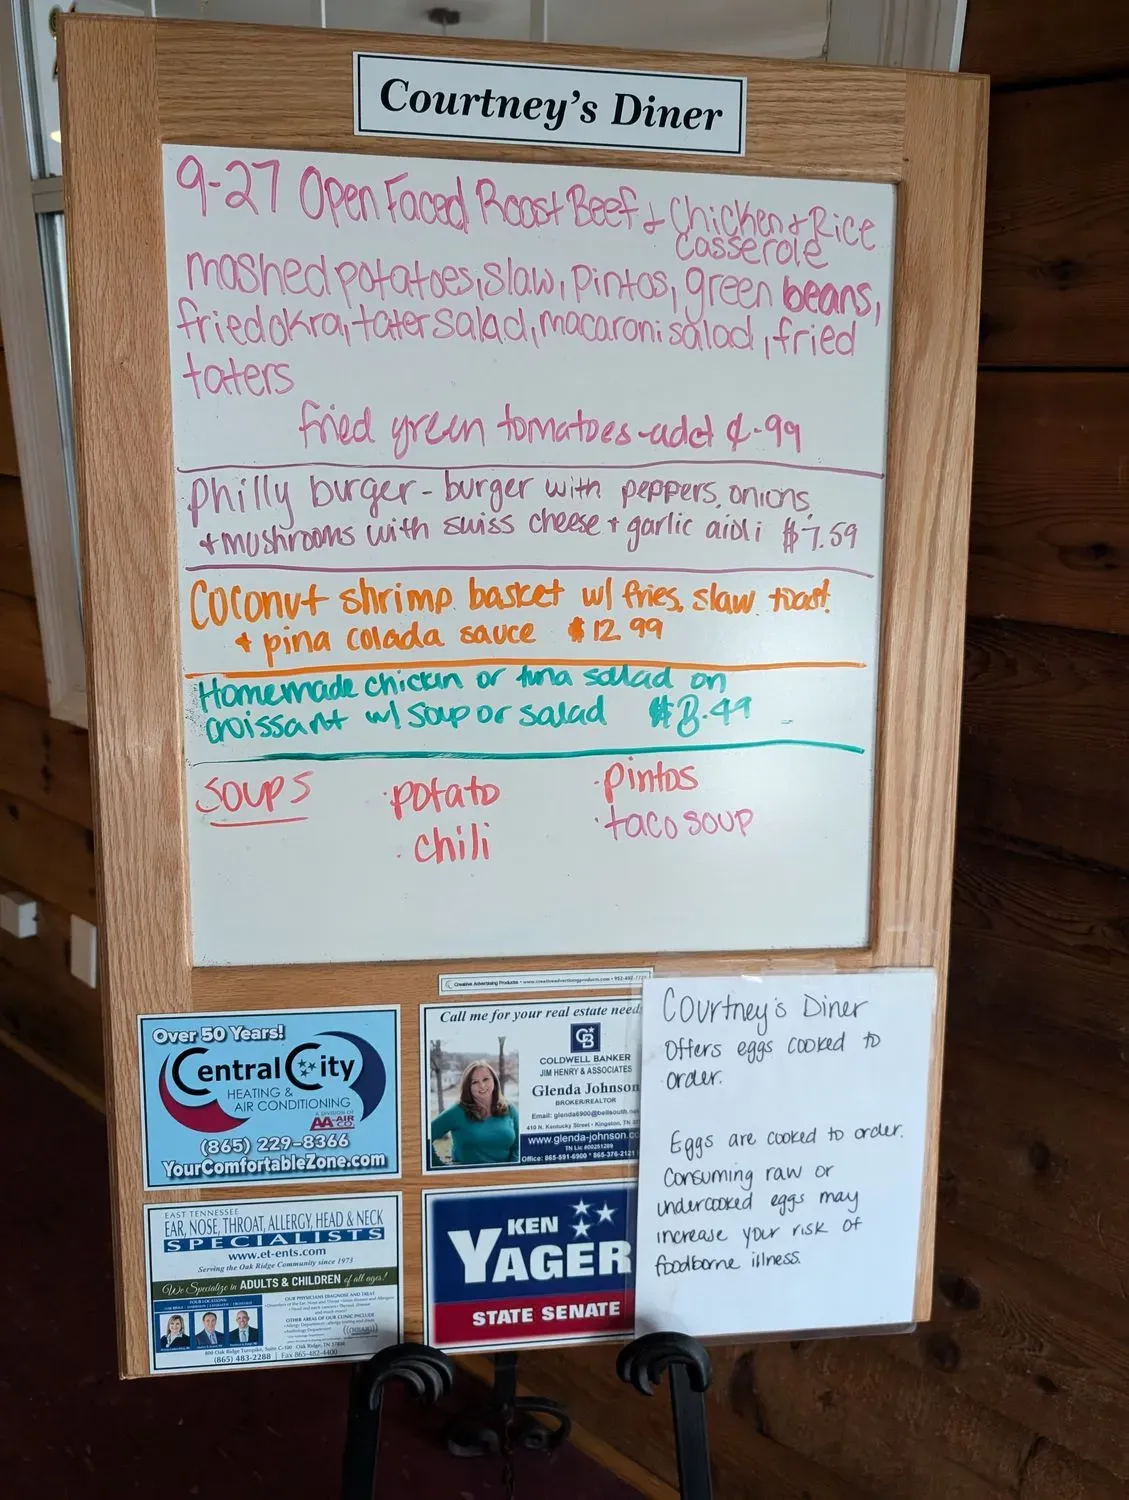 Courtney's Diner
9-27 Open Faced Roast Beef + Chicken + Rice
Casserole
mashed potatoes, slaw, pintos, green beans,
fried okra, tater salad, macaroni salad, fried
taters
fried green tomatoes - add ¢.99
philly burger - burger with peppers, onions,
+ mushrooms with swiss cheese + garlic aioli $7.59
Coconut shrimp basket w/ fries, slaw, toast
+ pina colada sauce $12.99
Homemade chicken or tuna salad on
croissant w/ soup or salad $8.49
soups
· potato
· pintos
· chili
· taco soup
Creative Advertising Products • www.creativeadvertisingproducts.com •
Over 50 Years!
Central City
HEATING &
AIR CONDITIONING
A DIVISION OF
AA-AIR
CO.
(865) 229-8366
YourComfortableZone.com
Call me for your real estate need
CB
COLDWELL BANKER
JIM HENRY & ASSOCIATES
Glenda Johnson
BROKER/REALTOR
Email: glenda6900@bellsouth.
410 N. Kentucky Street • Kingston, TN
www.glenda-johnson.co
Office: 865-591-6900 * 865-376-2121
EAST TENNESSEE
EAR, NOSE, THROAT, ALLERGY, HEAD & NECK
SPECIALISTS
www.et-ents.com
Serving the Oak Ridge Community since 1973
We Specialize in ADULTS & CHILDREN of all ages!
OUR PHYSICIANS DIAGNOSE AND TREAT
OTHER AREAS OF OUR CLINIC INCLUDE
800 Oak Ridge Turnpike, Suite C-100 Oak Ridge, TN
(865) 483-2288 | Fax 865-482-4400
KEN
YAGER
STATE SENATE
Courtney's Diner
Offers eggs cooked to
order.
Eggs are cooked to order.
Consuming raw or
undercooked eggs may
increase your risk of
foodborne illness.